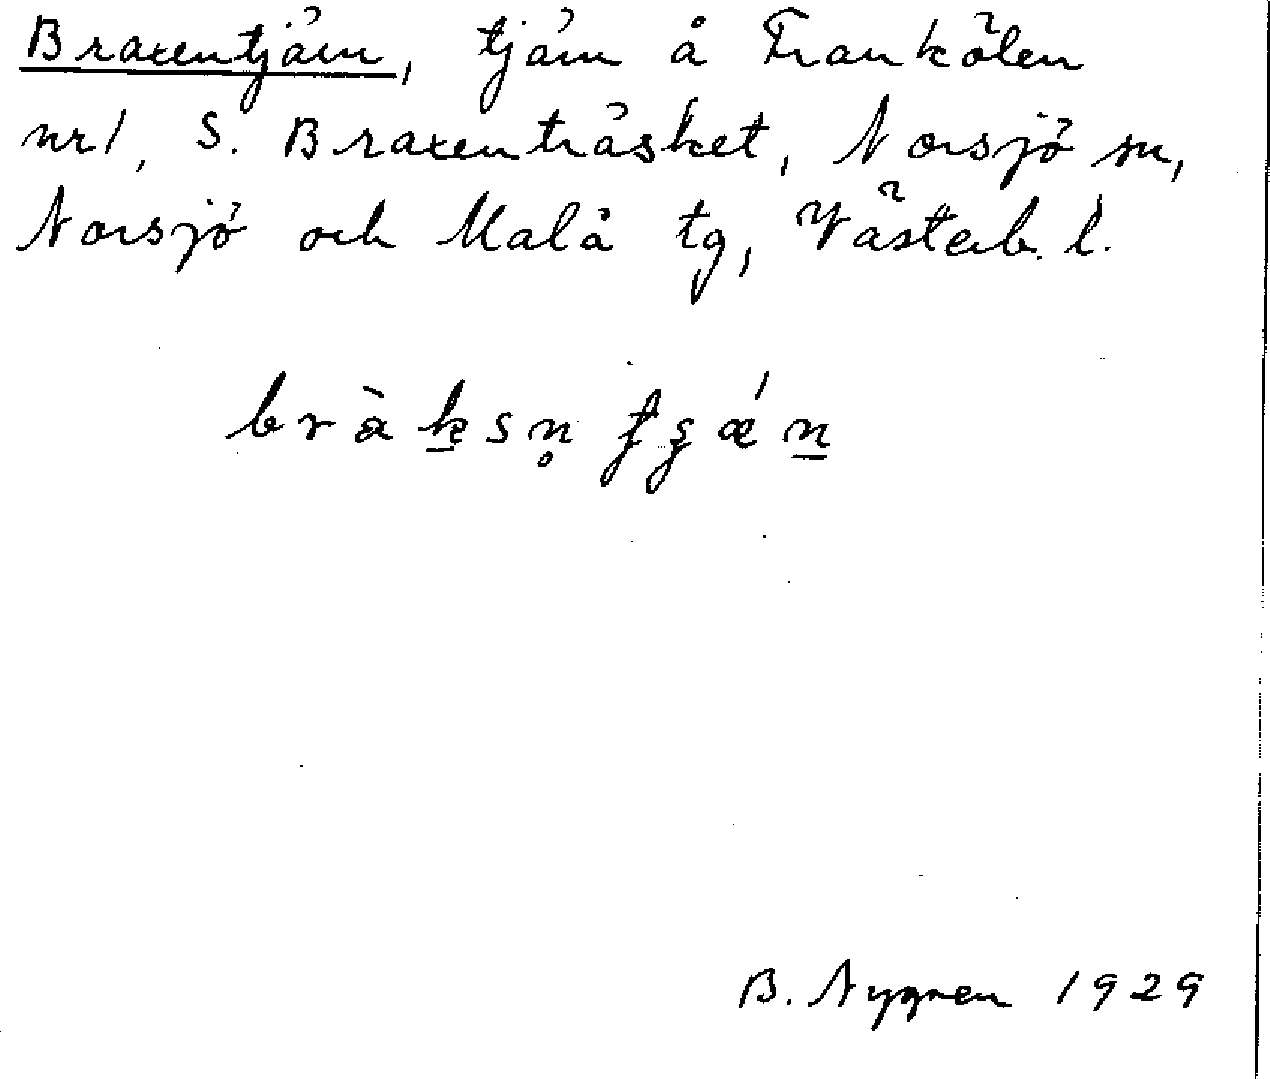 Braxentjärn, tjärn å Trankölen
nr 1, S. Braxenträsket, Norsjö sn,
Norsjö och Malå tg, Västerb. l.
B. Nygren 1929